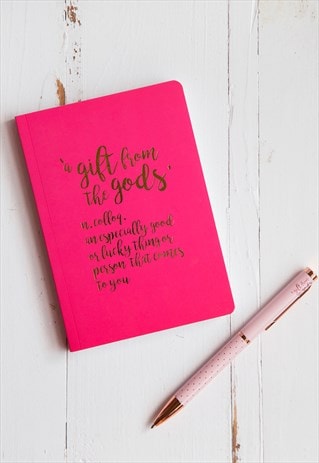 'a gift from
the gods'
n. colloq.
an especially good
or lucky thing or
person that comes
to you